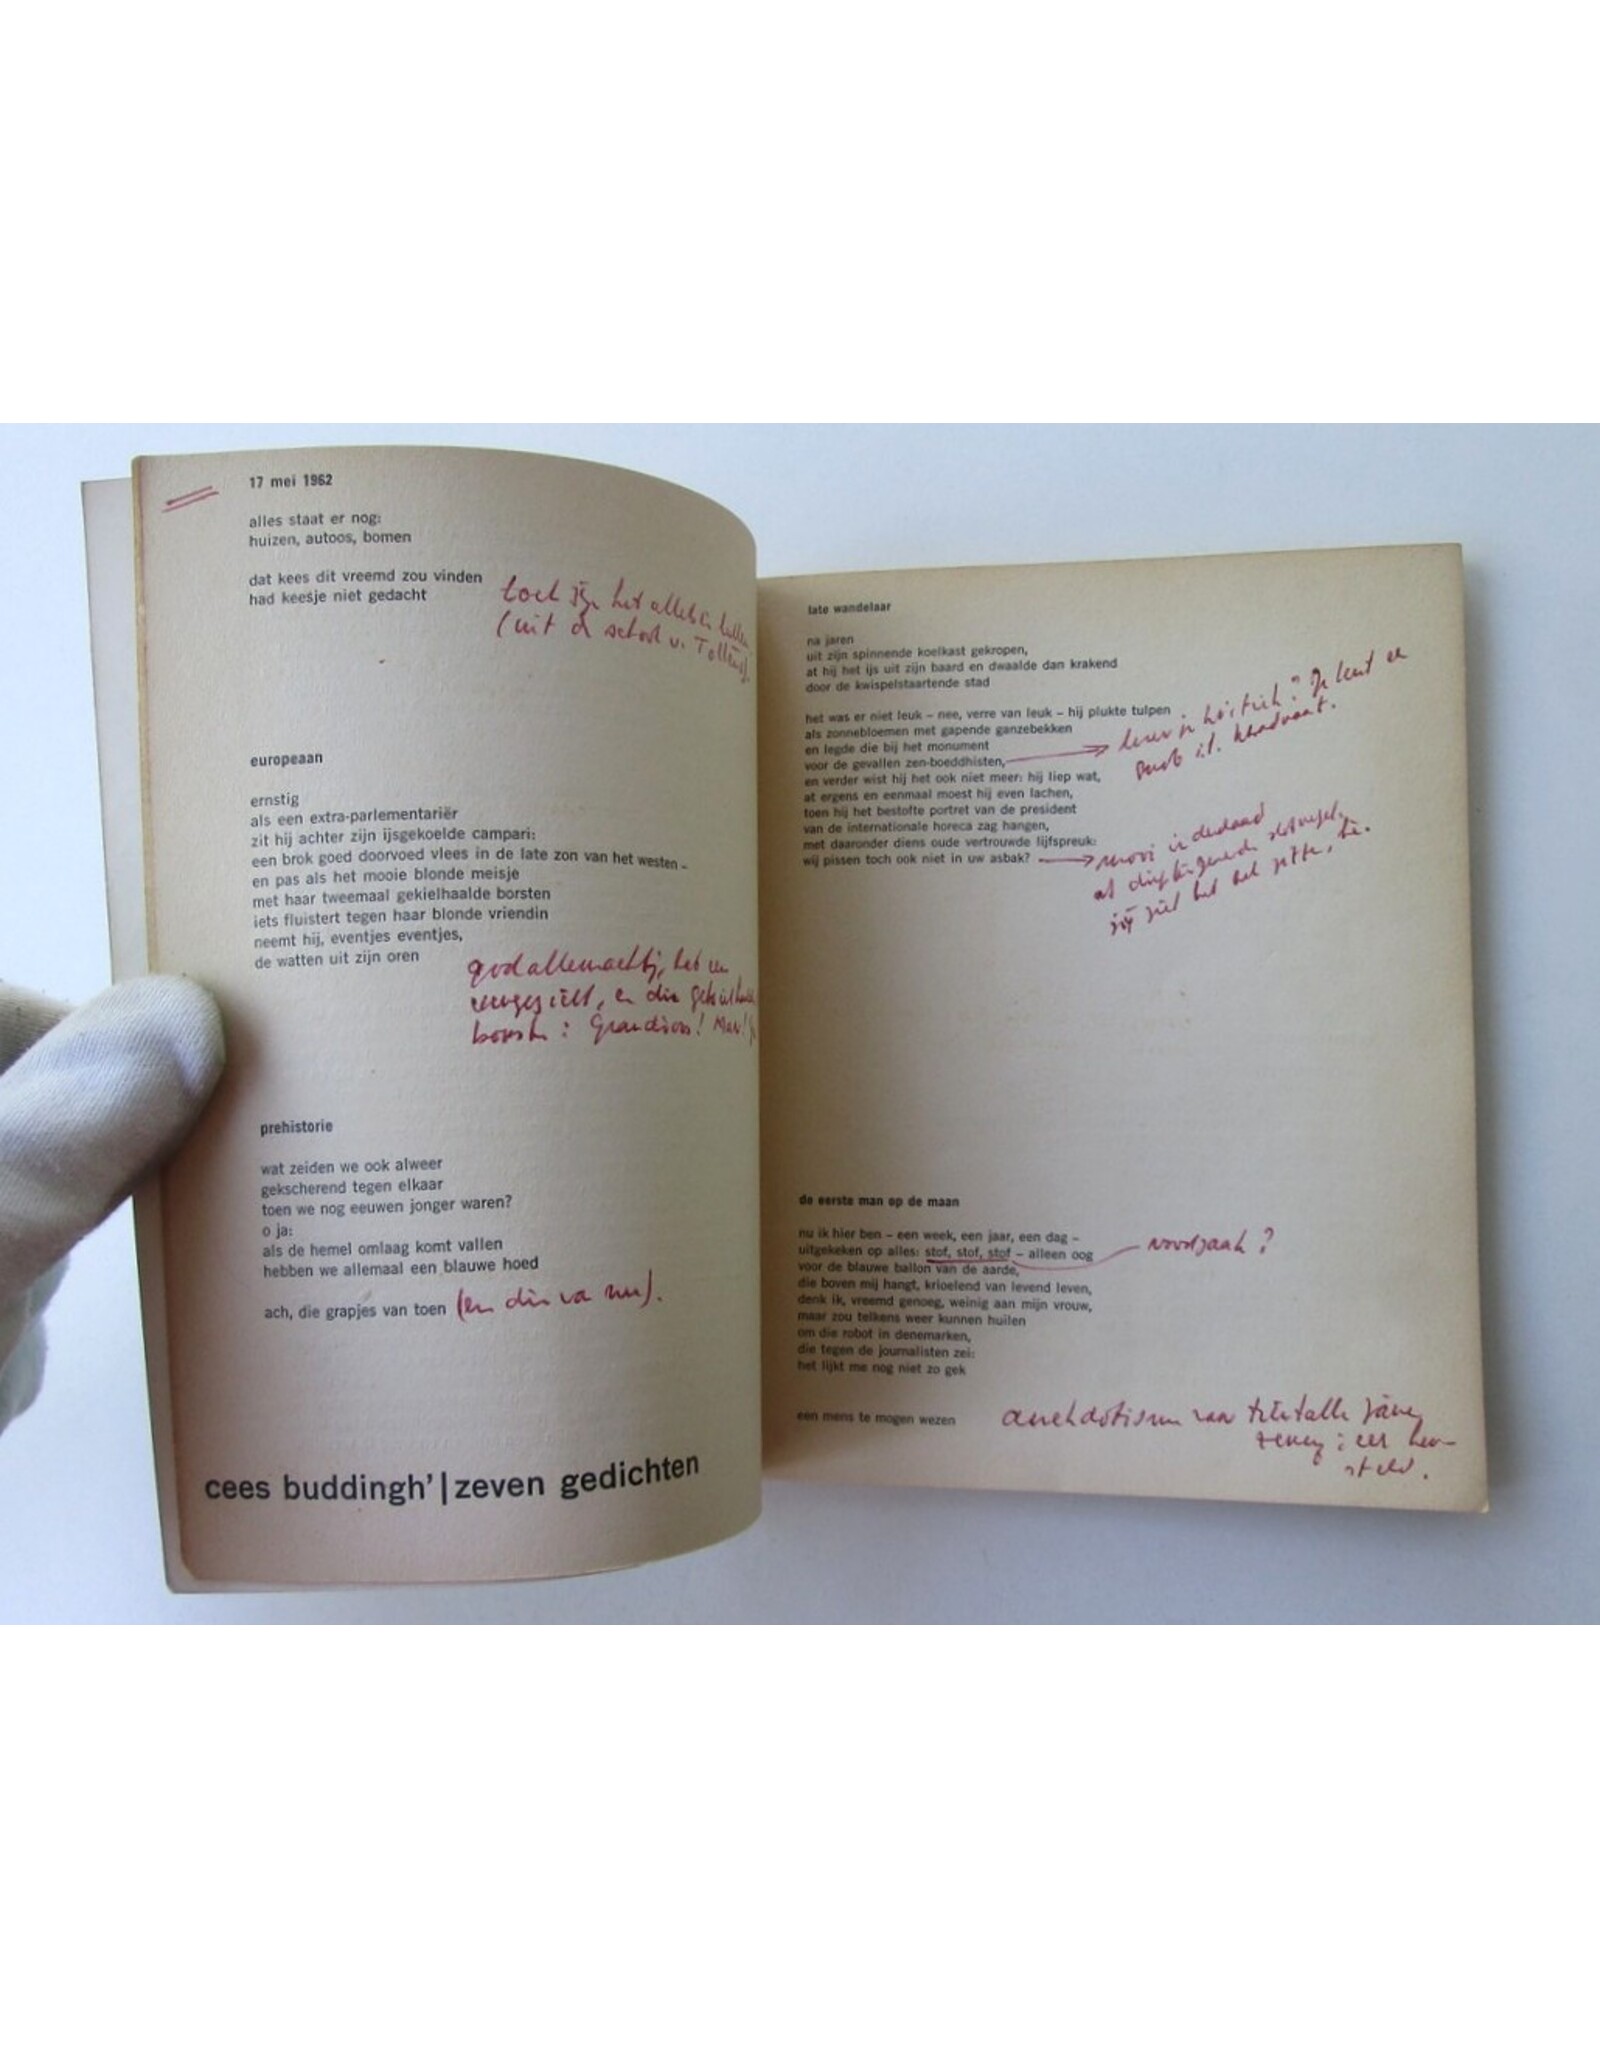 17 mei 1962
alles staat er nog:
huizen, autoos, bomen
dat kees dit vreemd zou vinden
had keesje niet gedacht
(uit de school v. Tollens).
europeaan
ernstig
als een extra-parlementariër
zit hij achter zijn ijsgekoelde campari:
een brok goed doorvoed vlees in de late zon van het westen –
en pas als het mooie blonde meisje
met haar tweemaal gekielhaalde borsten
iets fluistert tegen haar blonde vriendin
neemt hij, eventjes eventjes,
de watten uit zijn oren
godallemachtig, heb en
en die gekielhaalde
borsten: Grandioos! Man!
prehistorie
wat zeiden we ook alweer
gekscherend tegen elkaar
toen we nog eeuwen jonger waren?
o ja:
als de hemel omlaag komt vallen
hebben we allemaal een blauwe hoed
ach, die grapjes van toen (en die va nu).
cees buddingh' | zeven gedichten
late wandelaar
na jaren
uit zijn spinnende koelkast gekropen,
at hij het ijs uit zijn baard en dwaalde dan krakend
door de kwispelstaartende stad
het was er niet leuk – nee, verre van leuk – hij plukte tulpen
als zonnebloemen met gapende ganzebekken
en legde die bij het monument
voor de gevallen zen-boeddhisten,
en verder wist hij het ook niet meer: hij liep wat,
at ergens en eenmaal moest hij even lachen,
toen hij het bestofte portret van de president
van de internationale horeca zag hangen,
met daaronder diens oude vertrouwde lijfspreuk:
wij pissen toch ook niet in uw asbak?
mooi inderdaad
de eerste man op de maan
nu ik hier ben – een week, een jaar, een dag –
uitgekeken op alles: stof, stof, stof – alleen oog
noodzaak?
voor de blauwe ballon van de aarde,
die boven mij hangt, krioelend van levend leven,
denk ik, vreemd genoeg, weinig aan mijn vrouw,
maar zou telkens weer kunnen huilen
om die robot in denemarken,
die tegen de journalisten zei:
het lijkt me nog niet zo gek
een mens te mogen wezen
anekdotisme